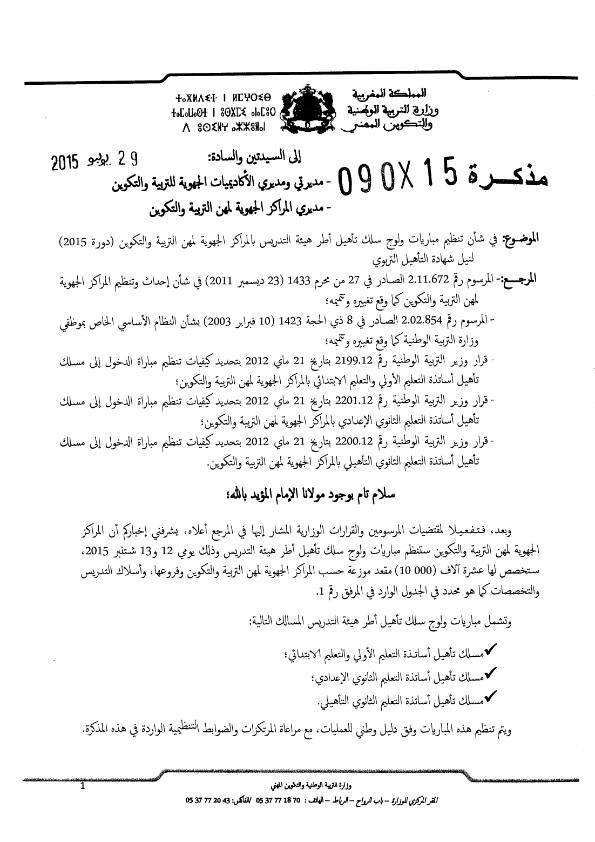 المملكة المغربية
وزارة التربية الوطنية
والتكوين المهني
ⵜⴰⴳⵍⴷⵉⵜ ⵏ ⵍⵎⵖⵔⵉⴱ
ⵜⴰⵎⴰⵡⴰⵙⵜ ⵏ ⵓⵙⴳⵎⵉ ⴰⵏⴰⵎⵓⵔ
ⴷ ⵓⵙⵎⵓⵜⵜⴳ ⴰⵣⵣⵓⵍⴰⵏ
29 يوليو 2015
إلى السيدتين والسادة:
مذكرة 090X15
- مديرتي ومديري الأكاديميات الجهوية للتربية والتكوين
- مديري المراكز الجهوية لمهن التربية والتكوين
الموضوع: في شأن تنظيم مباريات ولوج سلك تأهيل أطر هيئة التدريس بالمراكز الجهوية لمهن التربية والتكوين (دورة 2015)
لنيل شهادة التأهيل التربوي
المرجع:- المرسوم رقم 2.11.672 الصادر في 27 من محرم 1433 (23 ديسمبر 2011) في شأن إحداث وتنظيم المراكز الجهوية
لمهن التربية والتكوين كما وقع تغييره وتتميمه؛
- المرسوم رقم 2.02.854 الصادر في 8 ذي الحجة 1423 (10 فبراير 2003) بشأن النظام الأساسي الخاص بموظفي
وزارة التربية الوطنية كما وقع تغييره وتتميمه؛
- قرار وزير التربية الوطنية رقم 2199.12 بتاريخ 21 ماي 2012 بتحديد كيفيات تنظيم مباراة الدخول إلى مسلك
تأهيل أساتذة التعليم الأولي والتعليم الابتدائي بالمراكز الجهوية لمهن التربية والتكوين؛
- قرار وزير التربية الوطنية رقم 2201.12 بتاريخ 21 ماي 2012 بتحديد كيفيات تنظيم مباراة الدخول إلى مسلك
تأهيل أساتذة التعليم الثانوي الإعدادي بالمراكز الجهوية لمهن التربية والتكوين؛
- قرار وزير التربية الوطنية رقم 2200.12 بتاريخ 21 ماي 2012 بتحديد كيفيات تنظيم مباراة الدخول إلى مسلك
تأهيل أساتذة التعليم الثانوي التأهيلي بالمراكز الجهوية لمهن التربية والتكوين.
سلام تام بوجود مولانا الإمام المؤيد بالله؛
وبعد، فتفعيلا لمقتضيات المرسومين والقرارات الوزارية المشار إليها في المرجع أعلاه، يشرفني إخباركم أن المراكز
الجهوية لمهن التربية والتكوين ستنظم مباريات ولوج سلك تأهيل أطر هيئة التدريس وذلك يومي 12 و13 شتنبر 2015،
ستخصص لها عشرة آلاف (000 10) مقعد موزعة حسب المراكز الجهوية لمهن التربية والتكوين وفروعها، وأسلاك التدريس
والتخصصات كما هو محدد في الجدول الوارد في المرفق رقم 1.
وتشمل مباريات ولوج سلك تأهيل أطر هيئة التدريس المسالك التالية:
✓ مسلك تأهيل أساتذة التعليم الأولي والتعليم الابتدائي؛
✓ مسلك تأهيل أساتذة التعليم الثانوي الإعدادي؛
✓ مسلك تأهيل أساتذة التعليم الثانوي التأهيلي.
ويتم تنظيم هذه المباريات وفق دليل وطني للعمليات، مع مراعاة المرتكزات والضوابط التنظيمية الواردة في هذه المذكرة.
وزارة التربية الوطنية والتكوين المهني
1
المقر المركزي للوزارة – باب الرواح – الرباط – الهاتف : 70 18 77 37 05 الفاكس: 43 20 77 37 05